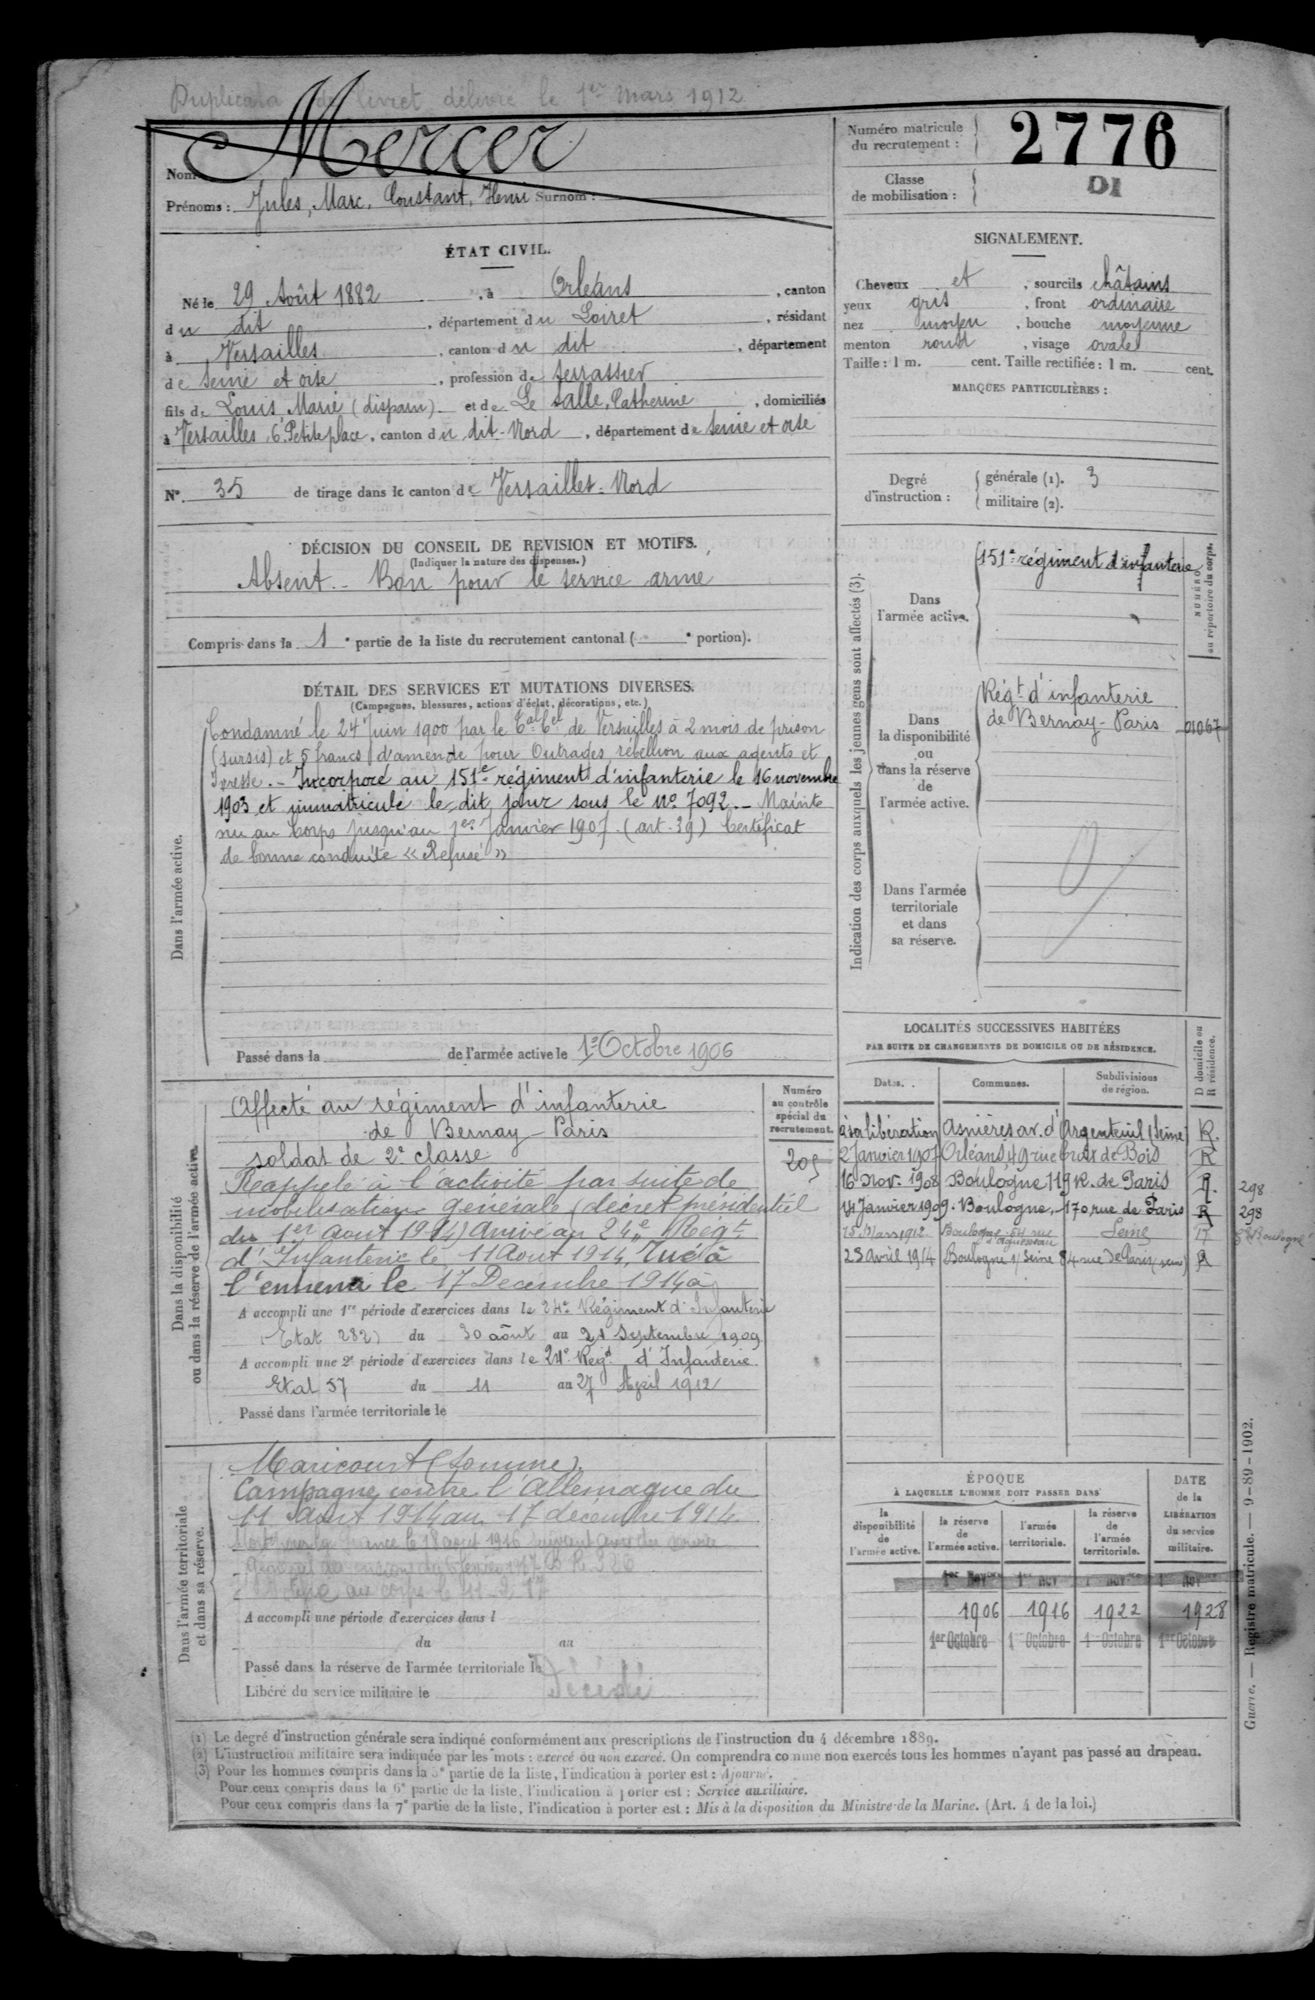 Duplicata du livret délivré le 1er Mars 1912
Nom Mercer
Prénoms : Jules, Marc, Constant, Henri Surnom :
Numéro matricule du recrutement : 2776
Classe de mobilisation : 01
ÉTAT CIVIL.
Né le 29 Août 1882, à Orléans, canton
du dit, département du Loiret, résidant
à Versailles, canton du dit, département
de Seine et oise, profession de terrassier
fils de Louis Marie (disparu) et de Le Salle, Catherine, domiciliés
à Versailles, 6 Petite place, canton du dit-Nord, département de Seine et oise
N° 35 de tirage dans le canton de Versailles-Nord
DÉCISION DU CONSEIL DE REVISION ET MOTIFS.
(Indiquer la nature des dispenses.)
Absent - Bon pour le service armé
Compris dans la 1e partie de la liste du recrutement cantonal ( e portion).
DÉTAIL DES SERVICES ET MUTATIONS DIVERSES.
(Campagnes, blessures, actions d'éclat, décorations, etc.)
Dans l'armée active.
Condamné le 24 Juin 1900 par le Tal Cel de Versailles à 2 mois de prison
(sursis) et 5 francs d'amende pour Outrages rébellion aux agents et
Ivresse. - Incorporé au 151e régiment d'infanterie le 16 novembre
1903 et immatriculé le dit jour sous le no 7092. - Mainte
nu au Corps jusqu'au 1er Janvier 1907. (art. 39) Certificat
de bonne conduite « Refusé »
Passé dans la de l'armée active le 1er Octobre 1906
Dans la disponibilité
ou dans la réserve de l'armée active.
Numéro
au contrôle
spécial du
recrutement.
205
Affecté au régiment d'infanterie
de Bernay - Paris
soldat de 2e classe
Rappelé à l'activité par suite de
mobilisation générale (décret présidentiel
du 1er aout 1914) arrivé au 24e Régt
d'Infanterie le 11 Aout 1914, Tué à
l'ennemi le 17 Décembre 1914 à
A accompli une 1re période d'exercices dans le 24e Régiment d'Infanterie
(Etat 282) du 30 août au 21 Septembre 1909
A accompli une 2e période d'exercices dans le 24e Regt d'Infanterie
Etat 57 du 11 au 27 April 1912
Passé dans l'armée territoriale le
Dans l'armée territoriale
et dans sa réserve.
Maricourt (Somme).
Campagne contre l'Allemagne du
11 Aout 1914 au 17 décembre 1914
Mort pour la France le 18 aout 1916
A accompli une période d'exercices dans l
du au
Passé dans la réserve de l'armée territoriale le
Libéré du service militaire le Décédé
SIGNALEMENT.
Cheveux et, sourcils châtains
yeux gris, front ordinaire
nez moyen, bouche moyenne
menton rond, visage ovale
Taille : 1 m. cent. Taille rectifiée : 1 m. cent.
MARQUES PARTICULIÈRES :
Degré d'instruction : générale (1). 3
militaire (2).
Indication des corps auxquels les jeunes gens sont affectés (3).
NUMÉRO
au répertoire du corps.
Dans
l'armée active.
151e régiment d'infanterie
Dans
la disponibilité
ou
dans la réserve
de
l'armée active.
Régt d'infanterie
de Bernay - Paris
01067
Dans l'armée
territoriale
et dans
sa réserve.
LOCALITÉS SUCCESSIVES HABITÉES
PAR SUITE DE CHANGEMENTS DE DOMICILE OU DE RÉSIDENCE.
D domicile ou
R résidence.
Dates. Communes. Subdivisions de région.
à sa libération Asnières av. d'Argenteuil (Seine) R.
2 Janvier 1907 Orléans 49 rue Croix de Bois R
16 Nov. 1908 Boulogne 119 R. de Paris R. 298
14 Janvier 1909. Boulogne, 170 rue de Paris R 298
15 Mars 1912 Boulogne 54 rue d'Aguesseau Seine R
23 avril 1914 Boulogne s/ Seine 84 rue de Paris (Seine) R
ÉPOQUE
À LAQUELLE L'HOMME DOIT PASSER DANS
la disponibilité de l'armée active.
la réserve de l'armée active.
l'armée territoriale.
la réserve de l'armée territoriale.
DATE de la LIBÉRATION du service militaire.
1er Nov 1er Nov 1er Nov 1er Nov
1906 1916 1922 1928
1er Octobre 1er Octobre 1er Octobre 1er Octobre
Guerre. — Registre matricule. — 9-89-1902.
(1) Le degré d'instruction générale sera indiqué conformément aux prescriptions de l'instruction du 4 décembre 1889.
(2) L'instruction militaire sera indiquée par les mots : exercé ou non exercé. On comprendra comme non exercés tous les hommes n'ayant pas passé au drapeau.
(3) Pour les hommes compris dans la 5e partie de la liste, l'indication à porter est : Ajourné.
Pour ceux compris dans la 6e partie de la liste, l'indication à porter est : Service auxiliaire.
Pour ceux compris dans la 7e partie de la liste, l'indication à porter est : Mis à la disposition du Ministre de la Marine. (Art. 4 de la loi.)